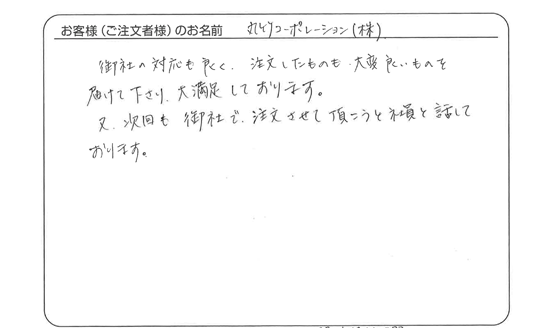 お客様(ご注文者様)のお名前 コーポレーション(株)
御社の対応も良く、注文したものも大変良いものを
届けて下さり、大満足しております。
又、次回も御社で、注文させて頂こうと社員と話して
おります。